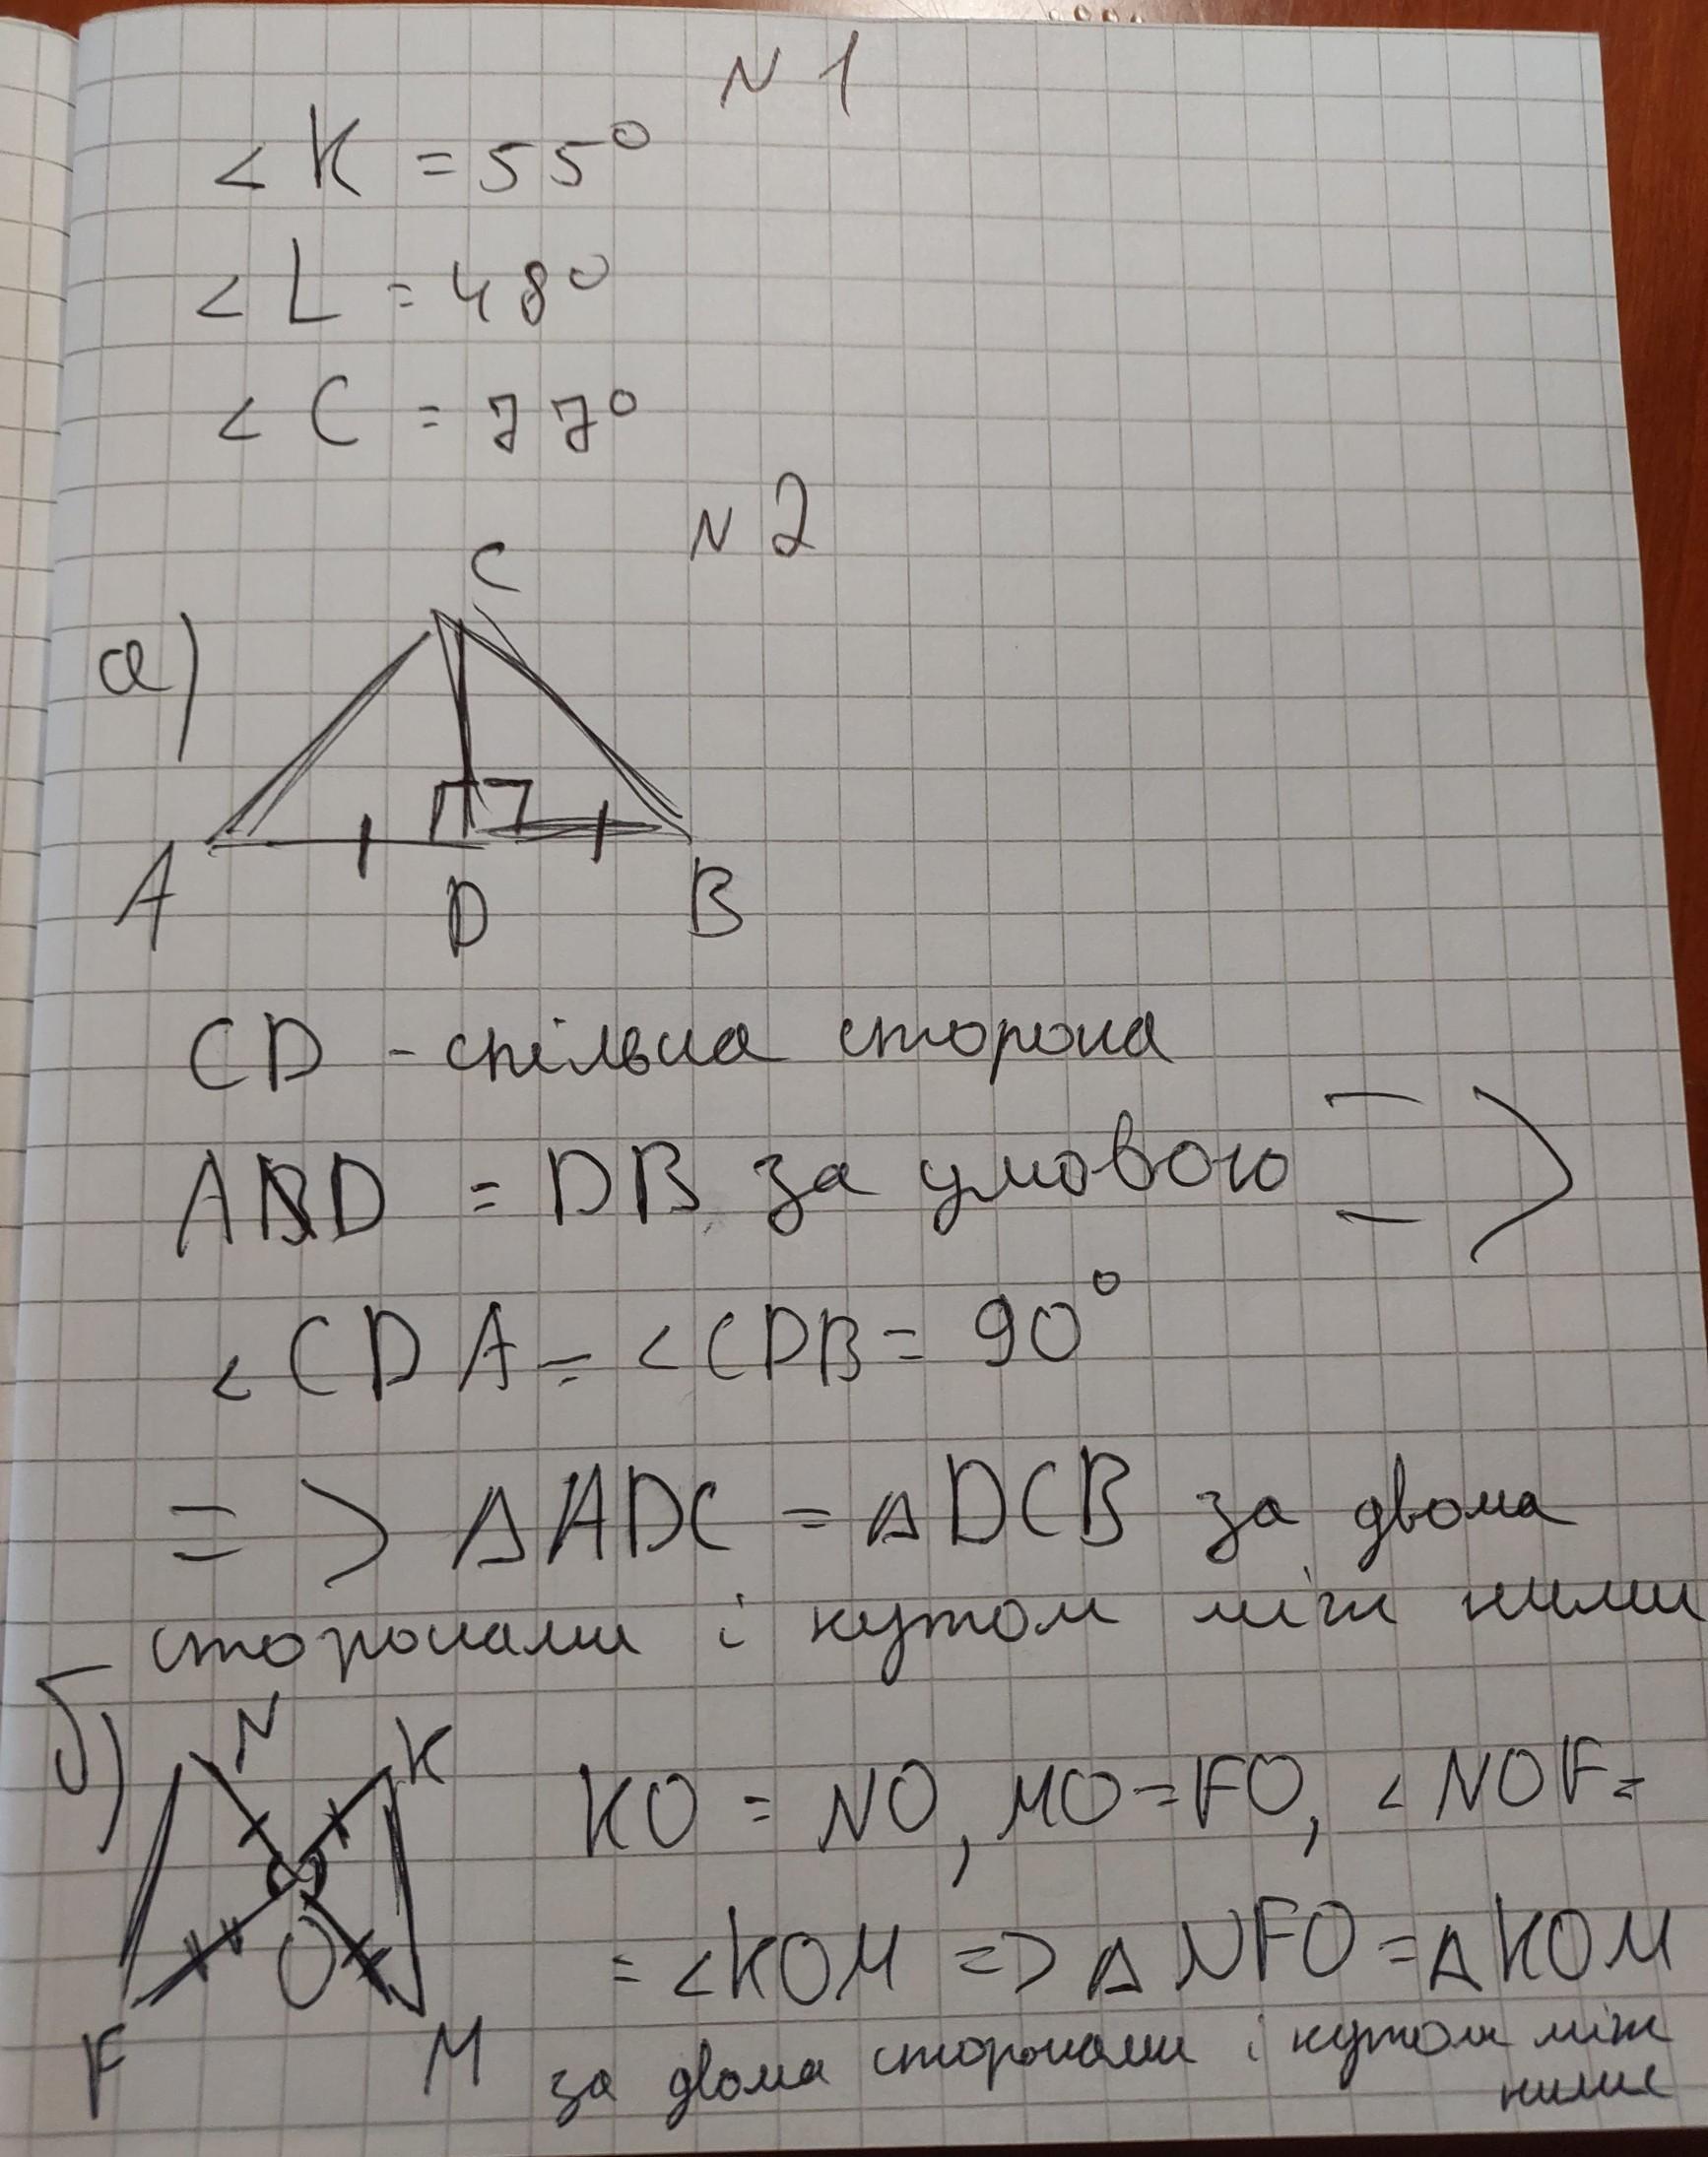 N 1
< K = 55°
< L = 48°
< C = 77°
N 2
C
а)
A D B
CD - спільна сторона
AD = DB за умовою =>
< CDA = < CDB = 90°
=> Δ ADC = Δ DCB за двома
сторонами і кутом між ними
б)
N K
KO = NO, MO = FO, < NOF =
O
= < KOM => Δ NFO = Δ KOM
F M
за двома сторонами і кутом між
ними